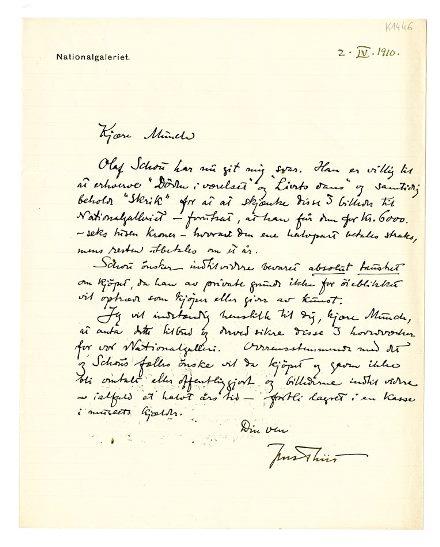 K1446
Nationalgaleriet.
2. IV. 1910.
Kjære Munch
Olaf Schou har nu git mig svar. Han er villig til
at erhverve "Döden i værelset" og "Livets dans" og samtidig
beholde "Skrik" for at skjænke disse 3 billeder til
Nationalgalleriet – forutsat, at han får dem for kr. 6000.
– seks tusen kroner – hvorav den ene halvpart betales straks,
mens resten utbetales om et år.
Schou önsker indtil videre bevaret absolut taushet
om kjöpet, da han av private grunde ikke for öieblikket
vil optræde som kjöper eller giver av kunst.
Jeg vil indstændig henstille til dig, kjære Munch,
at anta dette tilbud og derved sikre disse 3 hovedverker
for vor Nationalgalleri. Overensstemmende med dit
og Schous fælles önske vil da kjöpet og gaven ikke
bli omtalt eller offentliggjort og billederne indtil videre
– ialfald et halvt års tid – forbli lagret i en kasse
i museets kjelder.
Din ven
Jens Thiis